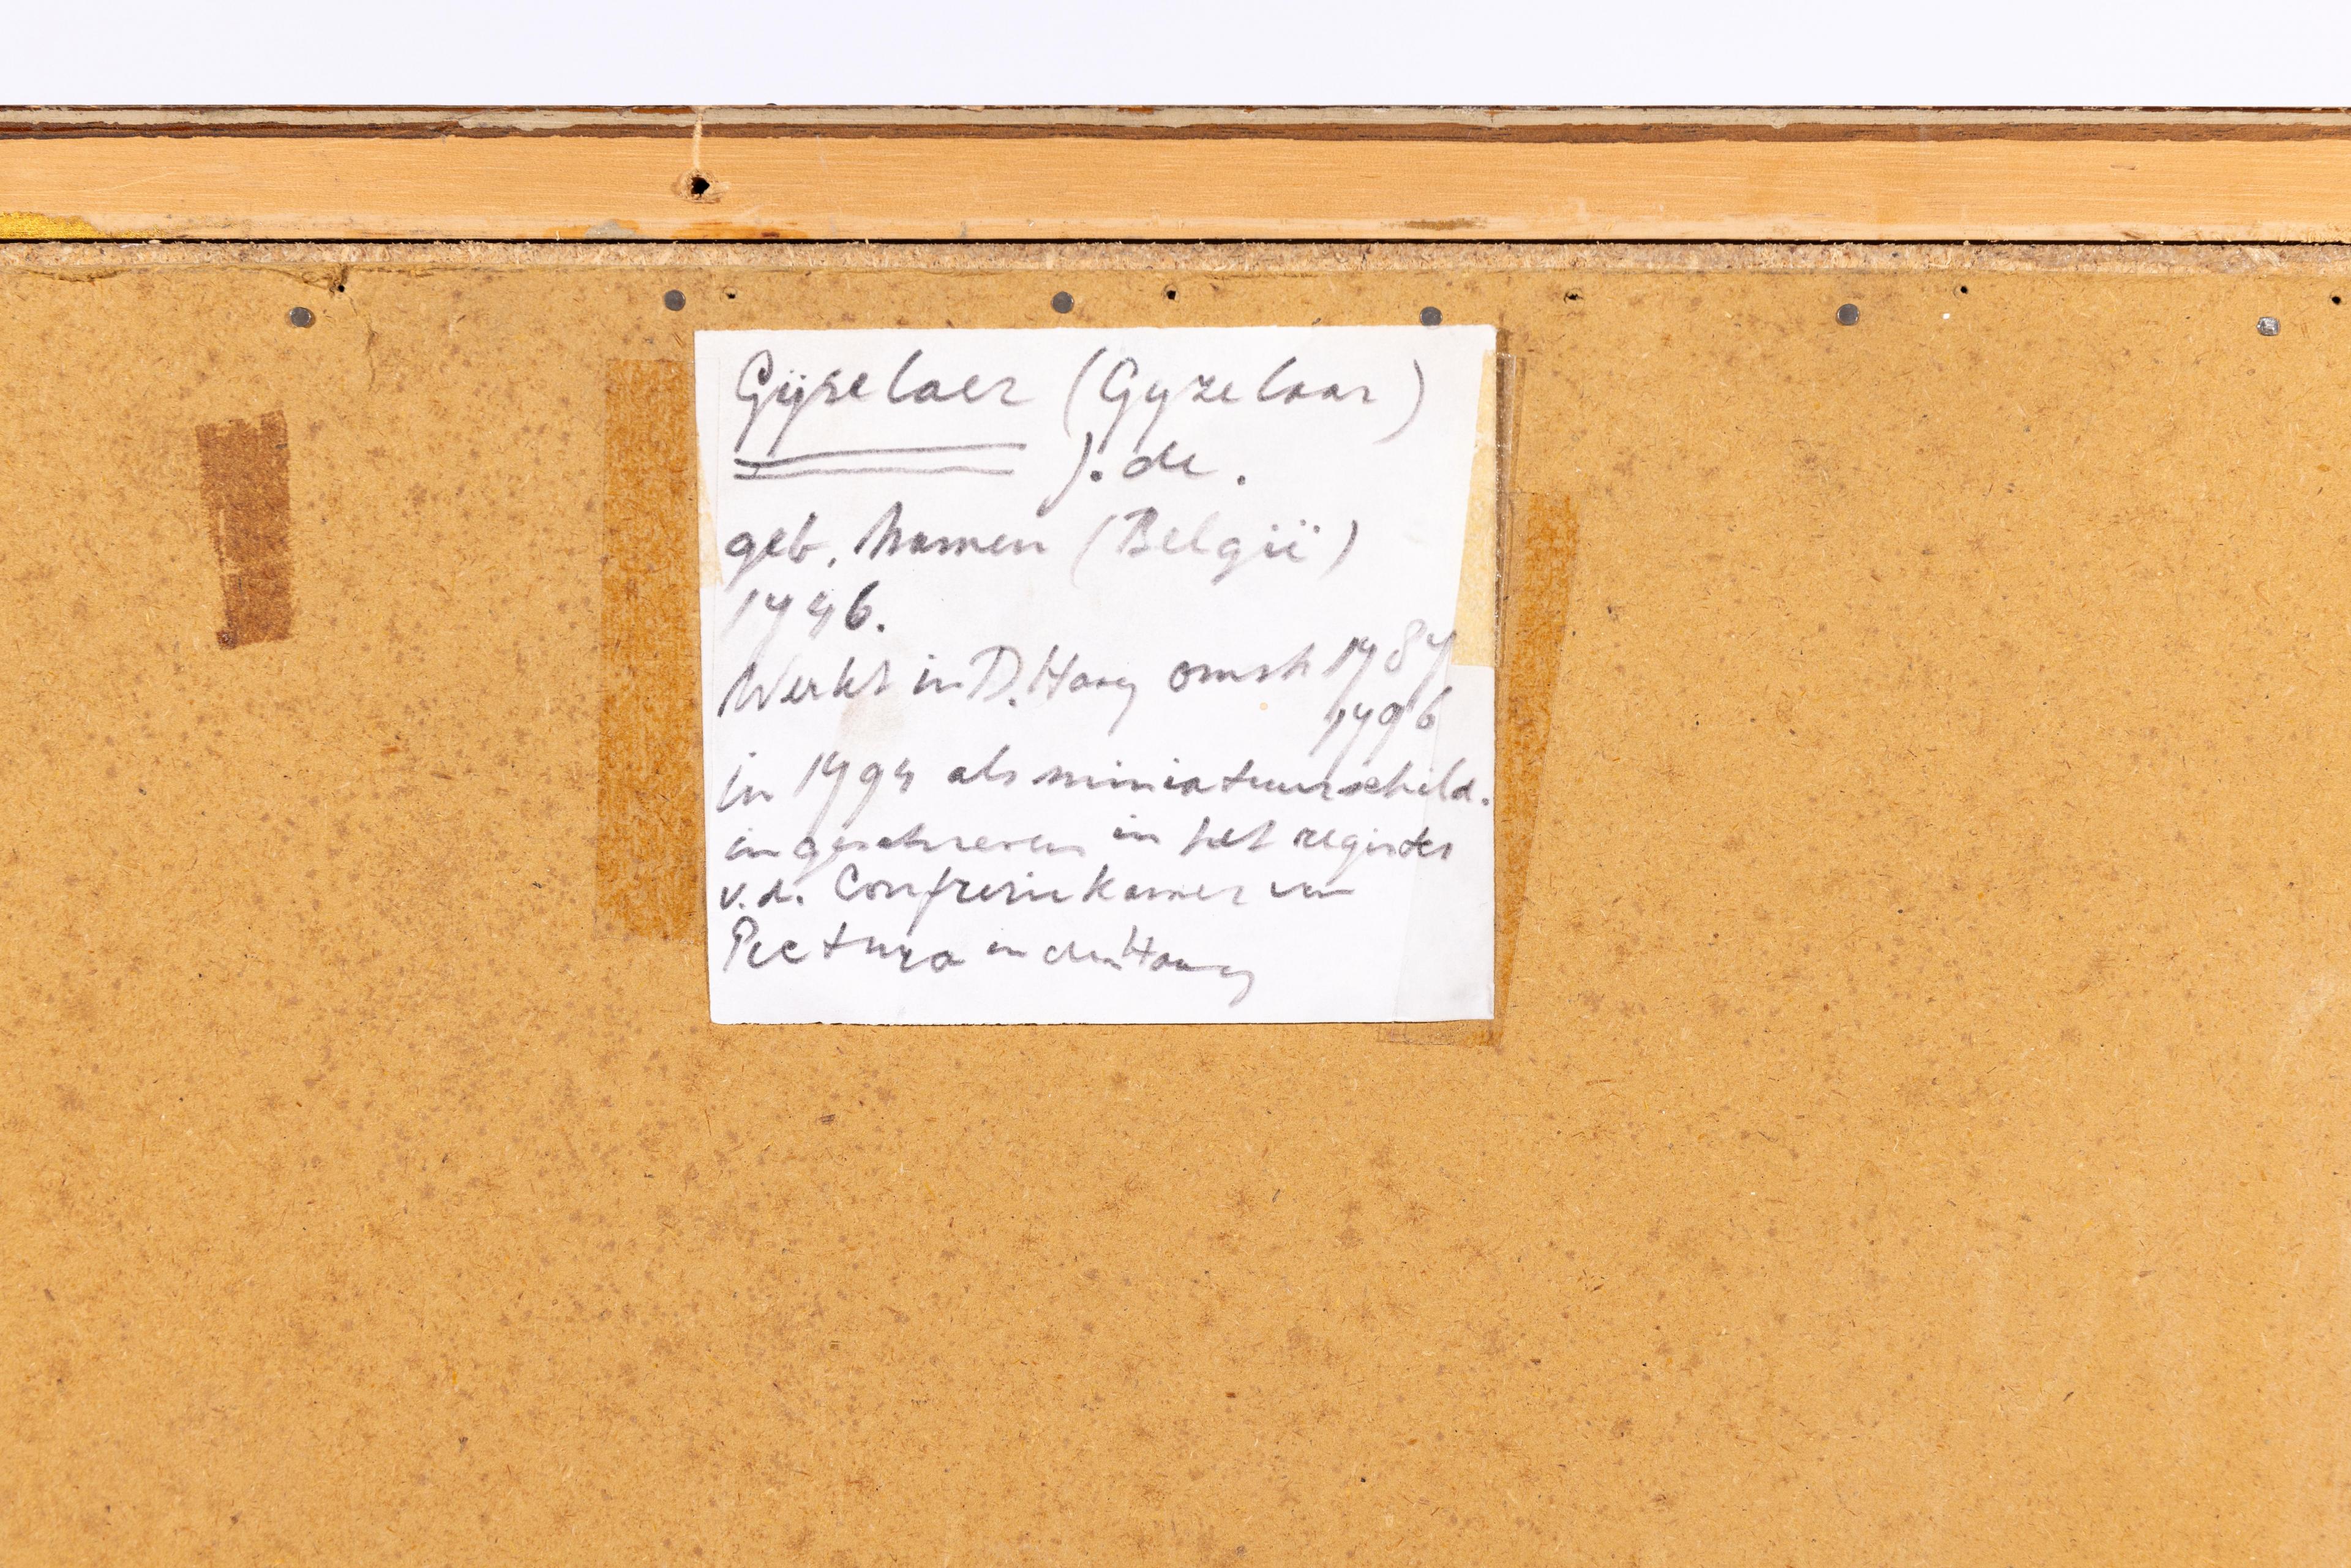 Gijselaer (Gyzelaar)
J. de.
geb. Namen (België)
1746.
Werkt in D. Haag omstr 1787
1796
in 1794 als miniatuurschild.
ingeschreven in het register
v.d. Confreriekamer van
Pictura in den Haag